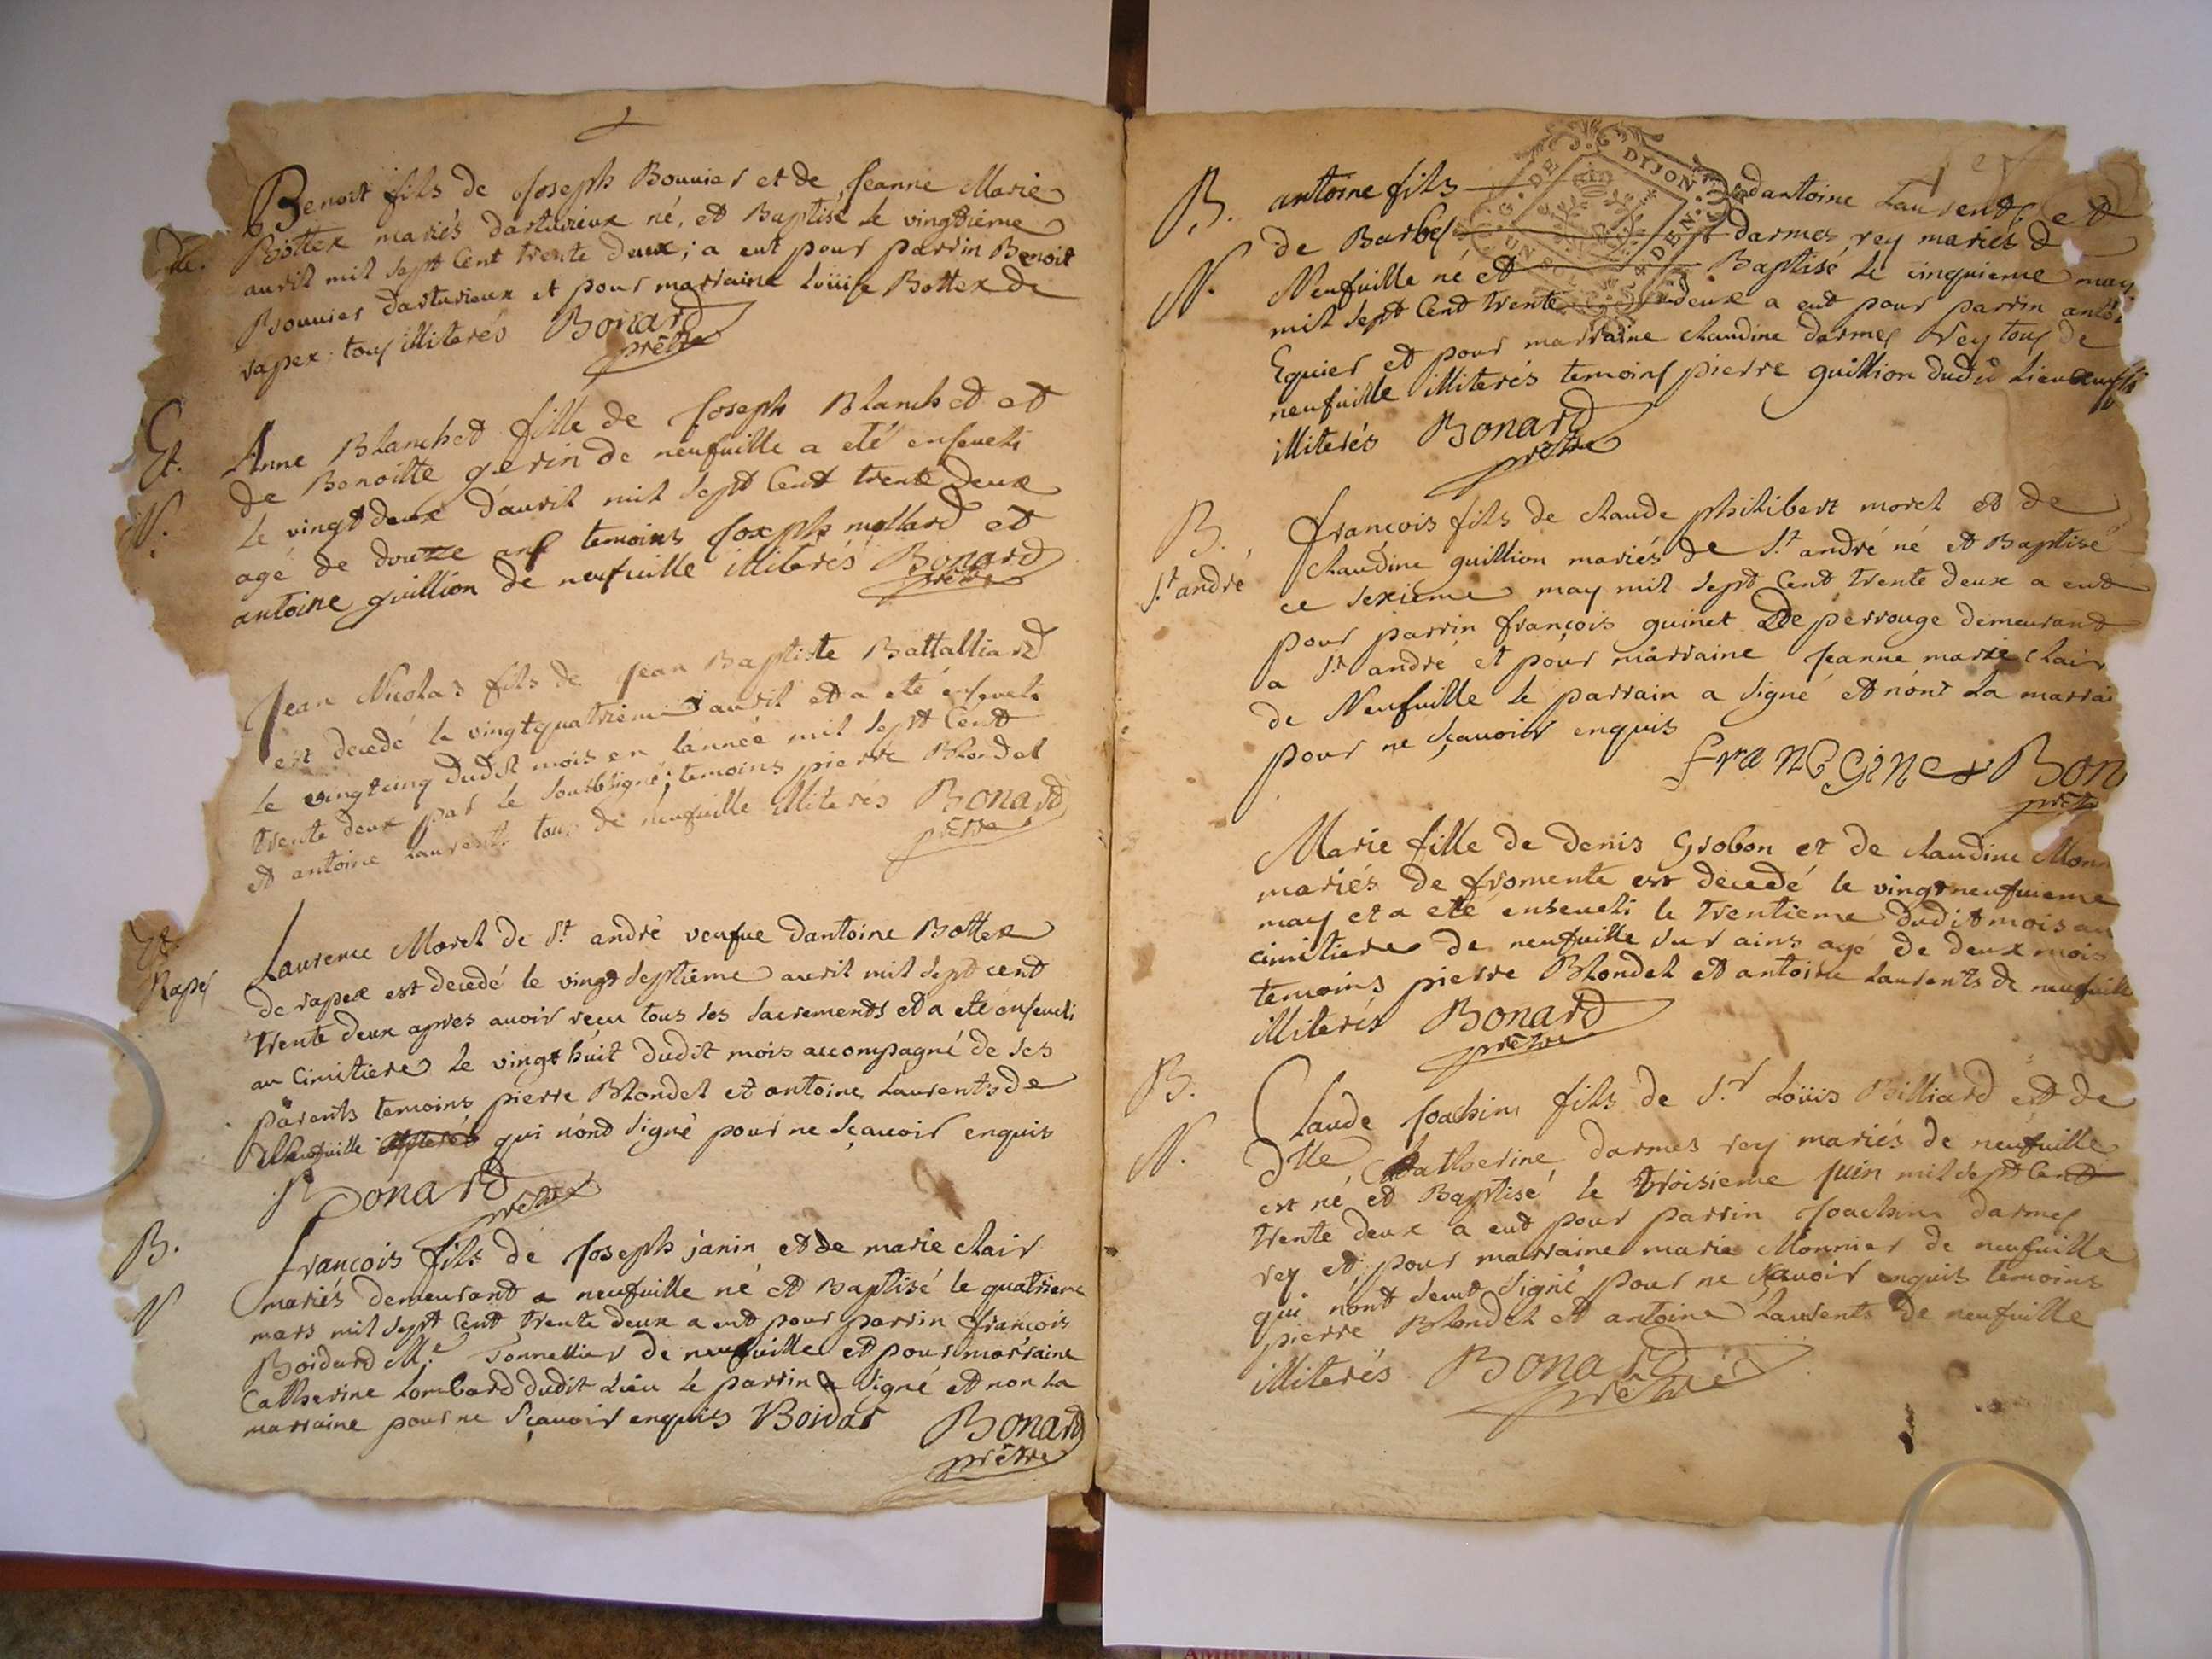 Benoit fils de Joseph Bouvier et de Jeanne Marie
Bottex mariés darturieux né, et Baptisé le vingtième
avril mil sept Cent trente deux; a eut pour parrin Benoit
Bouvier darturieux et pour marraine Loüise Bottex de
rapex tous illiterés Bonard
prêtre
Et.
N.
Anne Blanchet fille de Joseph Blanchet et
de Benoitte guerin de neufuille a eté enseueli
le vingt deux d'auril mil sept Cent trente deux
agé de douzze ans temoins Joseph mollard et
antoine guillion de neufuille illiterés Bonard
prêtre
Jean Nicolas fils de Jean Baptiste Battalliard
est decedé le vingtquatrieme auril et a eté enseueli
le vingtcinq dudit mois en lannée mil sept Cent
trente deux par le soubsigné; temoins pierre Blondel
et antoine Laurents tous de neufuille illiterés Bonard
prêtre
Et.
Rapé
Laurence Morel de St andré veufue dantoine Bottex
de rapex est decedé le vingt septième auril mil sept cent
trente deux apres auoir reçu tous ses sacrements et a eté enseueli
au Cimitiere le vingthuit dudit mois accompagné de ses
parents temoins pierre Blondel et antoine Laurents de
Neufuille qui n'ond signé pour ne sçauoir enquis
Bonard
prêtre
B.
N
françois fils de Joseph janin et de marie clair
mariés demeurant a neufuille né et Baptisé le quatrieme
mars mil sept Cent trente deux a eut pour parrin françois
Boidard Me Tonnellier de neufuille et pour marraine
Catherine Lombard dudit Lieu le parrin a signé et non la
marraine pour ne sçauoir enquis Boidar Bonard
prêtre
B.
N.
antoine fils dantoine Laurents et
de Barbe darmes rey mariés d
Neufuille né et Baptisé le cinquieme may
mil sept Cent trente deux a eut pour parrin
Equier et pour marraine claudine darmes rey tous de
neufuille illiterés temoins pierre guillion dudit Lieu
illiterés Bonard
prêtre
B.
St andré
françois fils de claude philibert morel et de
claudine guillion mariés de St andré né et Baptisé
ce sexieme may mil sept Cent trente deux a eut
pour parrin françois guinet de perrouge demeurant
a St andré et pour marraine Jeanne marie clair
de Neufuille le parrain a signé et nont La marrai
pour ne sçauoir enquis
Bon
prêtr
Marie fille de denis Grobon et de claudine Monn
mariés de fromente est decedé le vingtneufuieme
may et a eté enseueli le trentieme dudit mois au
cimitiere de neufuille sur ains agé de deux mois
temoins pierre Blondel et antoine Laurents de neufuille
illiterés Bonard
prêtre
B.
N.
Claude Joachim fils de Sr Loüis Billiard et de
dlle Catherine darmes rey mariés de neufuille
est né et Baptisé le troisieme juin mil sept Cent
trente deux a eut pour parrin Joachim darmes
rey et pour marraine marie Monnier de neufuille
qui nont seut signé pour ne sçauoir enquis temoins
pierre Blondel et antoine Laurents de neufuille
illiterés Bonard
prêtre
G. DE DIJON
UN SOL DEN.